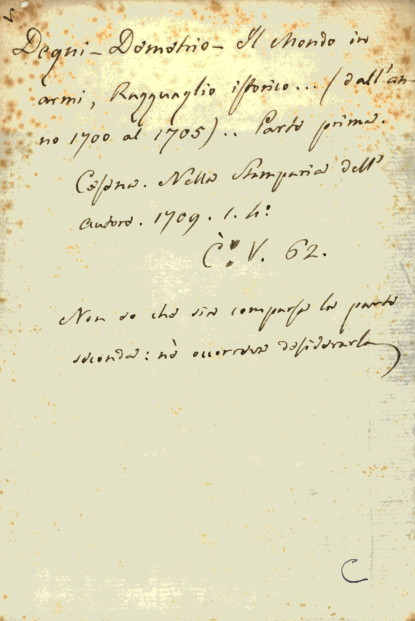 Degni - Demetrio - Il Mondo in
armi, Ragguaglio istorico... (dall'an-
no 1700 al 1705).. Parte prima.
Cesena. Nella Stamparia dell'
Autore. 1709. 1. h:
È. V. 62.
Non so che sia comparsa la parte
seconda: nè occorreva desiderarla
C